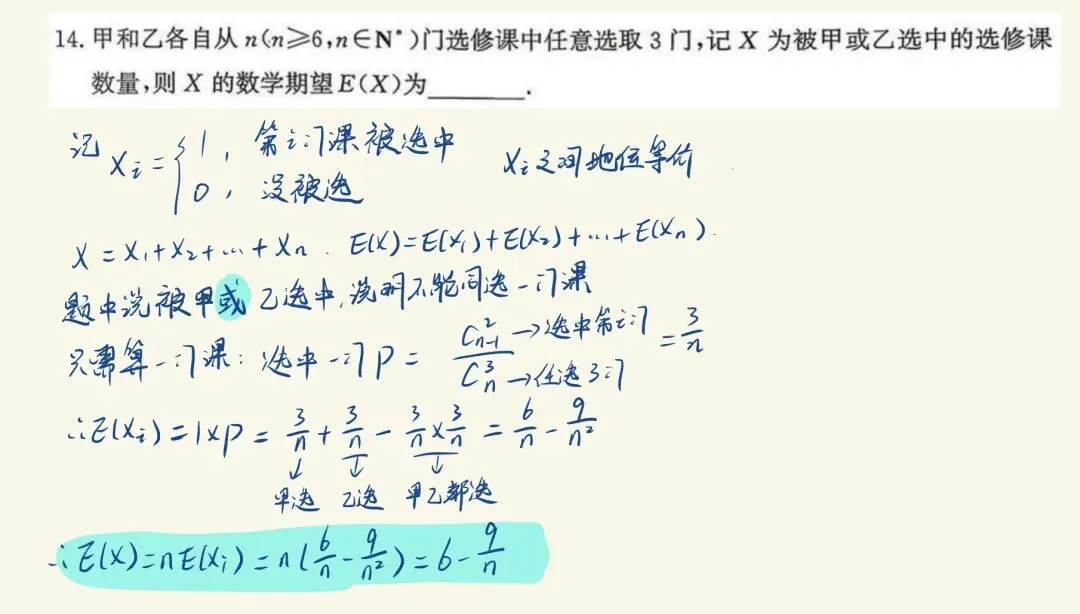 14. 甲和乙各自从 n(n≥6,n∈N*)门选修课中任意选取 3 门,记 X 为被甲或乙选中的选修课
数量,则 X 的数学期望 E(X)为________.
记 Xi = { 1, 第i门课被选中
0, 没被选
Xi之间地位等价
X = X1+X2+…+Xn . E(X)=E(X1)+E(X2)+…+E(Xn).
题中说被甲或乙选中,说明不能同选一门课
只需算一门课: 选中一门 P = C²n-1/C³n = 3/n
→选中第i门
→任选3门
∴E(Xi) = 1×P = 3/n + 3/n - 3/n × 3/n = 6/n - 9/n²
↓ ↓ ↓
甲选 乙选 甲乙都选
∴E(X)=nE(Xi) = n(6/n - 9/n²) = 6 - 9/n